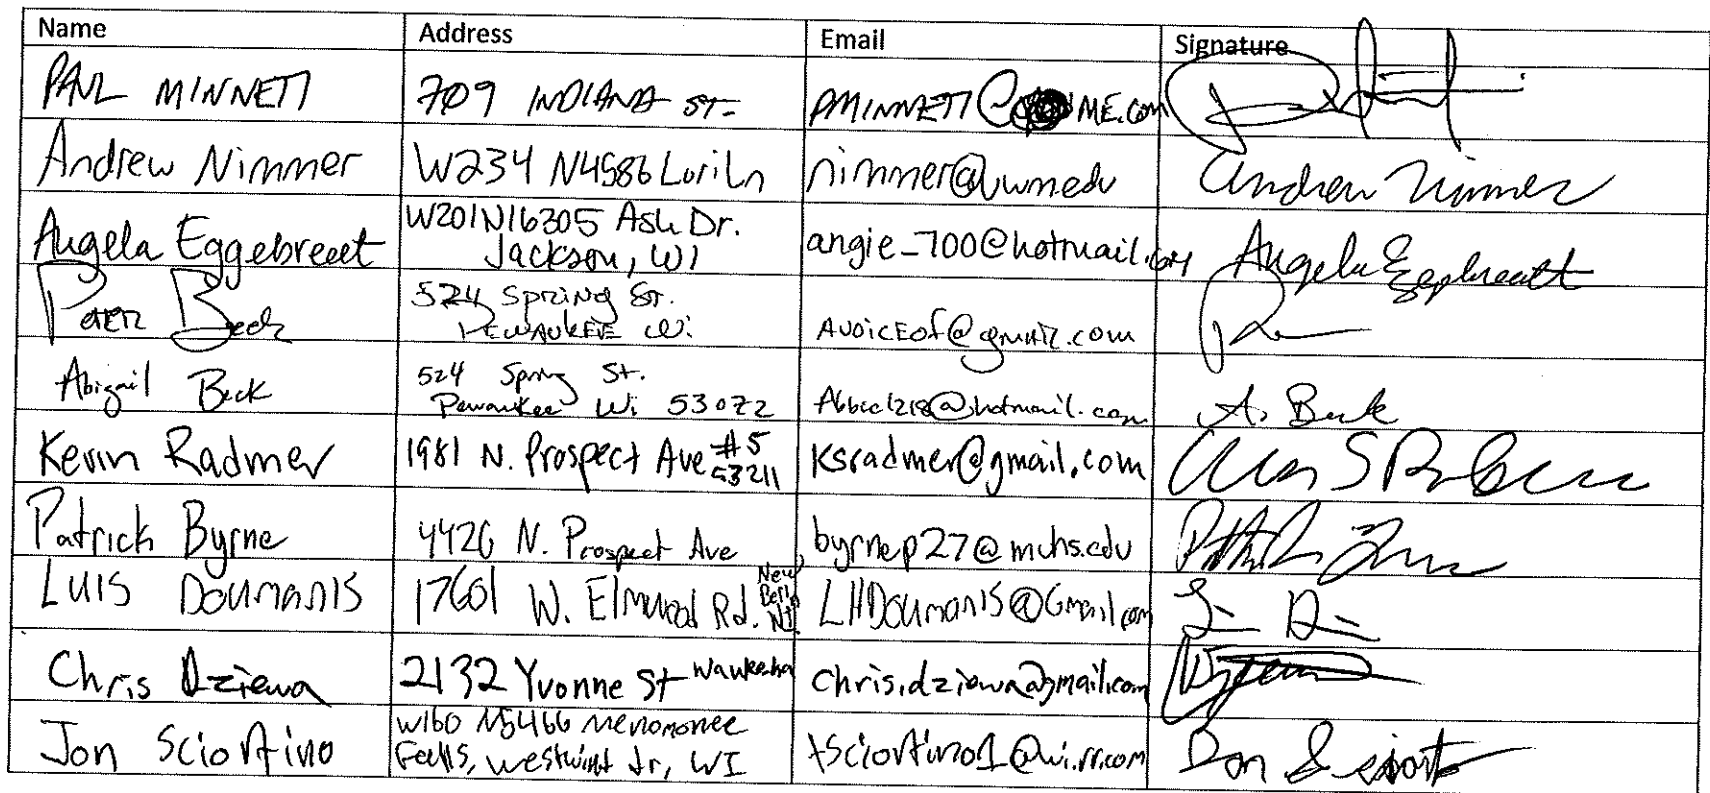 Name Address Email Signature
PAUL MINNETI 709 INDIANA ST. PMINNETI@ME.com
Andrew Nimmer W234 N4586 Lori Ln nimmer@uwm.edu Andrew Nimmer
Angela Eggebreeet W201N16305 Ash Dr.
Jackson, WI angie_700@hotmail.com Angela
PETER Beck 524 Spring St.
PEWAUKEE Wi. AVOICEOf@gmail.com
Abigail Beck 524 Spring St.
Pewaukee Wi 53072 @hotmail.com A. Beck
Kevin Radmer 1981 N. Prospect Ave #5
53211 Ksradmer@gmail.com
Patrick Byrne 4426 N. Prospect Ave byrnep27@muhs.edu
LUIS DOUMANIS 17601 W. Elmwood Rd. New Berlin WI. LHDOUMANIS@Gmail.com
Chris Dziewa 2132 Yvonne St Waukesha chris.dziewa@gmail.com
Jon Sciortino W160 N5466 Menomonee
Falls, Westwind dr, WI tsciortino1@wi.rr.com